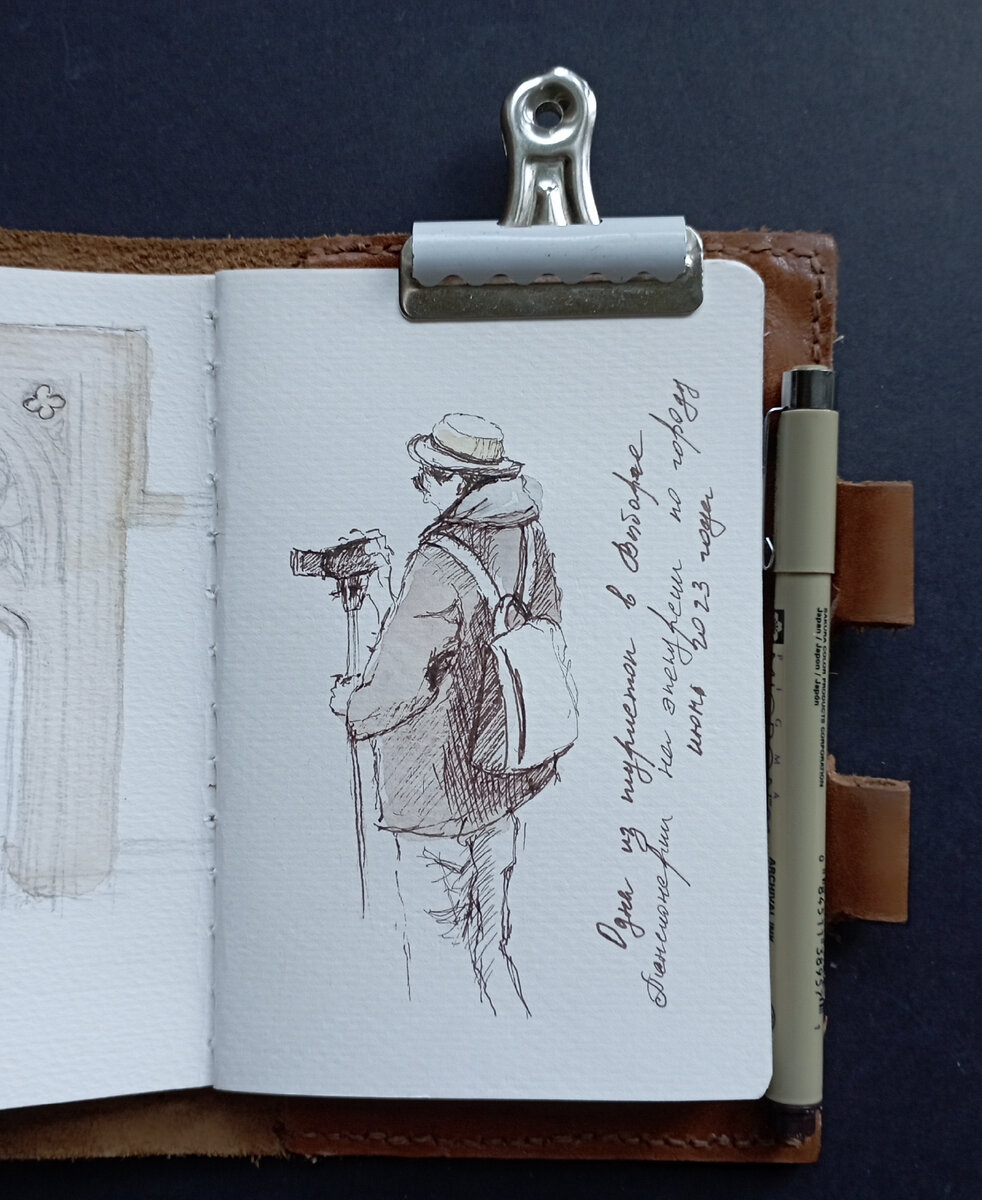 Одна из туристок в Выборге
Пенсионерки на экскурсии по городу
июнь 2023 года
SAKURA COLOR PRODUCTS CORPORATION
Japan / Japon / Japón
PIGMA
ARCHIVAL INK